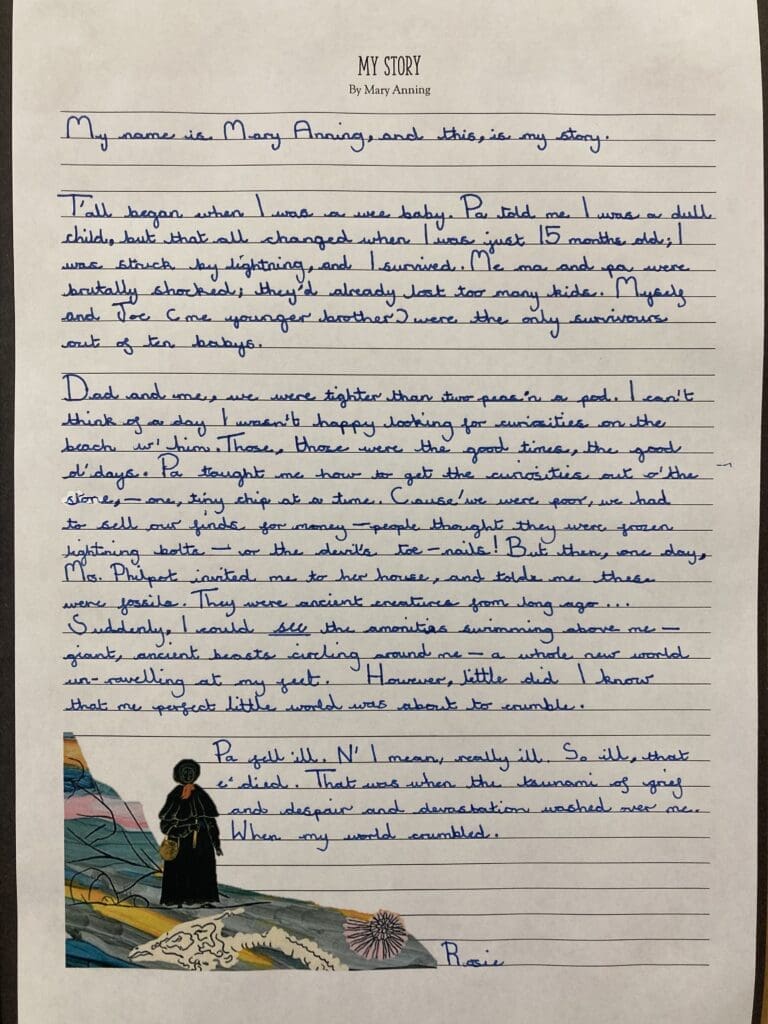 MY STORY
By Mary Anning
My name is Mary Anning, and this, is my story.
T'all began when I was a wee baby. Pa told me I was a dull
child, but that all changed when I was just 15 months old; I
was struck by lightning, and I survived. Me ma and pa were
brutally shocked; they'd already lost too many kids. Myself
and Joe (me younger brother) were the only survivours
out of ten babys.
Dad and me, we were tighter than two peas'n a pod. I can't
think of a day I wasn't happy looking for curiosities on the
beach w' him. Those, those were the good times, the good
ol' days. Pa tought me how to get the curiosities out o' the
stone, – one, tiny chip at a time. Cause' we were poor, we had
to sell our finds for money – people thought they were frozen
lightning bolts – or the devil's toe-nails! But then, one day,
Mrs. Philpot invited me to her house, and tolds me these
were fossils. They were ancient creatures from long ago ...
Suddenly, I could see the amonities swimming above me –
giant, ancient beasts circling around me – a whole new world
un-ravelling at my feet. However, little did I know
that me perfect little world was about to crumble.
Pa fell 'ill. N' I mean, really ill. So ill, that
e' died. That was when the tsunami of grief
and despair and devastation washed over me.
When my world crumbled.
Rosie